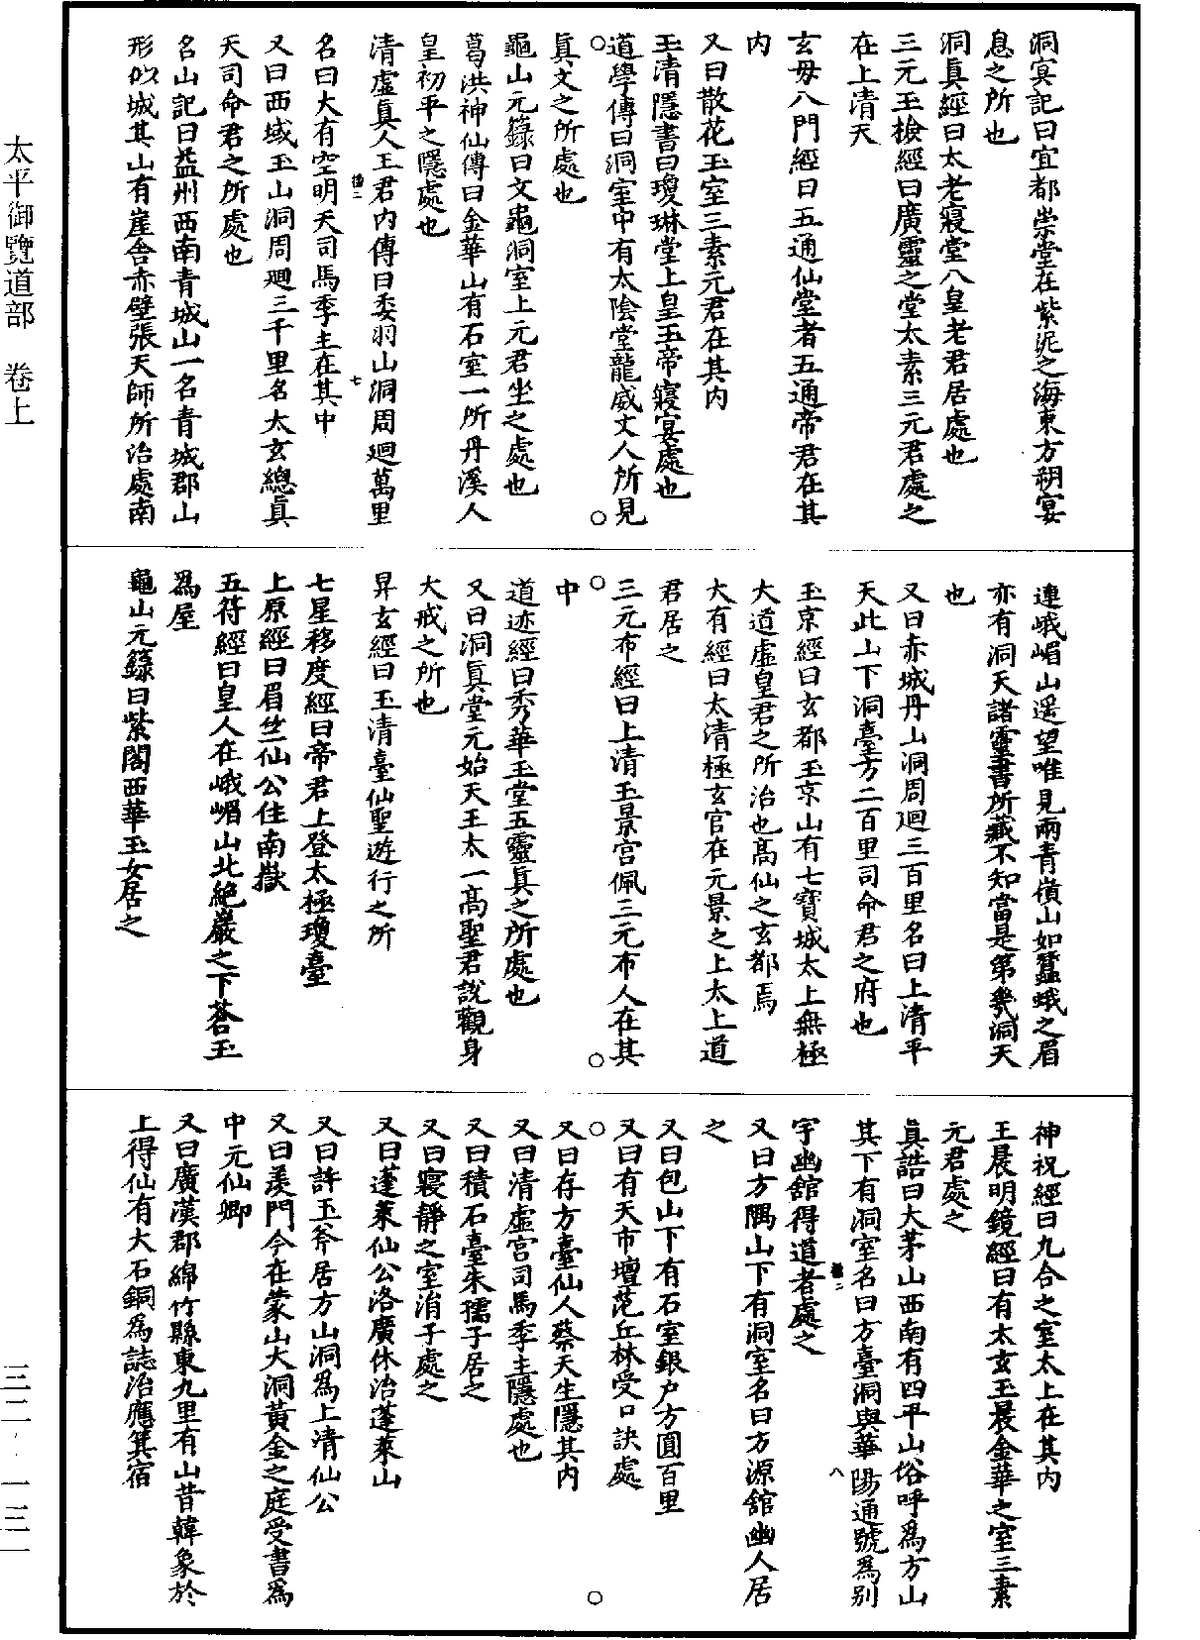 洞冥記曰宜都崇堂在紫泥之海東方朔宴
息之所也
洞眞經曰太老寢堂八皇老君居處也
三元玉檢經曰廣靈之堂太素三元君處之
在上清天
玄母八門經曰五通仙堂者五通帝君在其
內
又曰散花玉室三素元君在其內
玉清隱書曰瓊琳堂上皇玉帝寢宴處也
道學傳曰洞室中有太陰堂龍威丈人所見
眞文之所處也
龜山元籙曰文龜洞室上元君坐之處也
葛洪神仙傳曰金華山有石室一所丹溪人
皇初平之隱處也
清虛眞人王君內傳曰委羽山洞周迴萬里
名曰大有空明天司馬季主在其中
又曰西域玉山洞周迴三千里名太玄總眞
天司命君之所處也
名山記曰益州西南青城山一名青城郡山
形似城其山有崖舍赤壁張天師所治處南
連峨嵋山遥望唯見兩青嶺山如蠶蛾之眉
亦有洞天諸靈書所藏不知當是第幾洞天
也
又曰赤城丹山洞周迴三百里名曰上清平
天此山下洞臺方二百里司命君之府也
玉京經曰玄都玉京山有七寶城太上無極
大道虛皇君之所治也高仙之玄都焉
大有經曰太清極玄官在元景之上太上道
君居之
三元布經曰上清玉景宫佩三元布人在其
中
道迹經曰秀華玉堂五靈眞之所處也
又曰洞眞堂元始天王太一高聖君說觀身
大戒之所也
昇玄經曰玉清臺仙聖遊行之所
七星移度經曰帝君上登太極瓊臺
上原經曰眉竺仙公住南嶽
五符經曰皇人在峨嵋山北絶巖之下蒼玉
爲屋
龜山元籙曰紫閣西華玉女居之
神祝經曰九合之室太上在其內
玉晨明鏡經曰有太玄玉晨金華之室三素
元君處之
眞誥曰大茅山西南有四平山俗呼爲方山
其下有洞室名曰方臺洞與華陽通號爲別
宇幽舘得道者處之
又曰方隅山下有洞室名曰方源舘幽人居
之
又曰包山下有石室銀户方圓百里
又曰有天市壇范丘林受口訣處
又曰存方臺仙人蔡天生隱其內
又曰清虛宫司馬季主隱處也
又曰積石臺朱孺子居之
又曰寢靜之室涓子處之
又曰蓬萊仙公洛廣休治蓬萊山
又曰許玉斧居方山洞爲上清仙公
又曰羨門今在蒙山大洞黃金之庭受書爲
中元仙卿
又曰廣漢郡綿竹縣東九里有山昔韓象於
上得仙有大石銅爲誌治應箕宿
太平御覽道部 卷上
三二・一三一
七
八